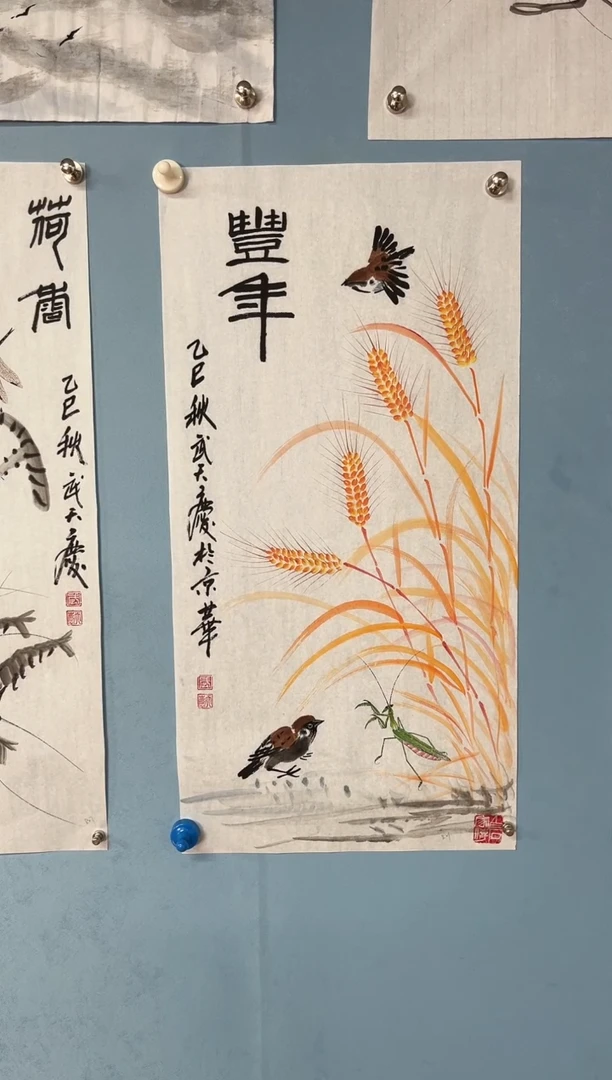 豐年
乙巳秋武天慶於京華
荷香
乙巳秋武天慶